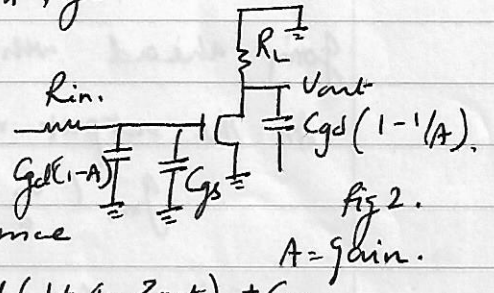 RL
Rin.
Vout
Cgd(1-1/A).
Cgd(1-A)
Cgs
fig 2.
A = gain.